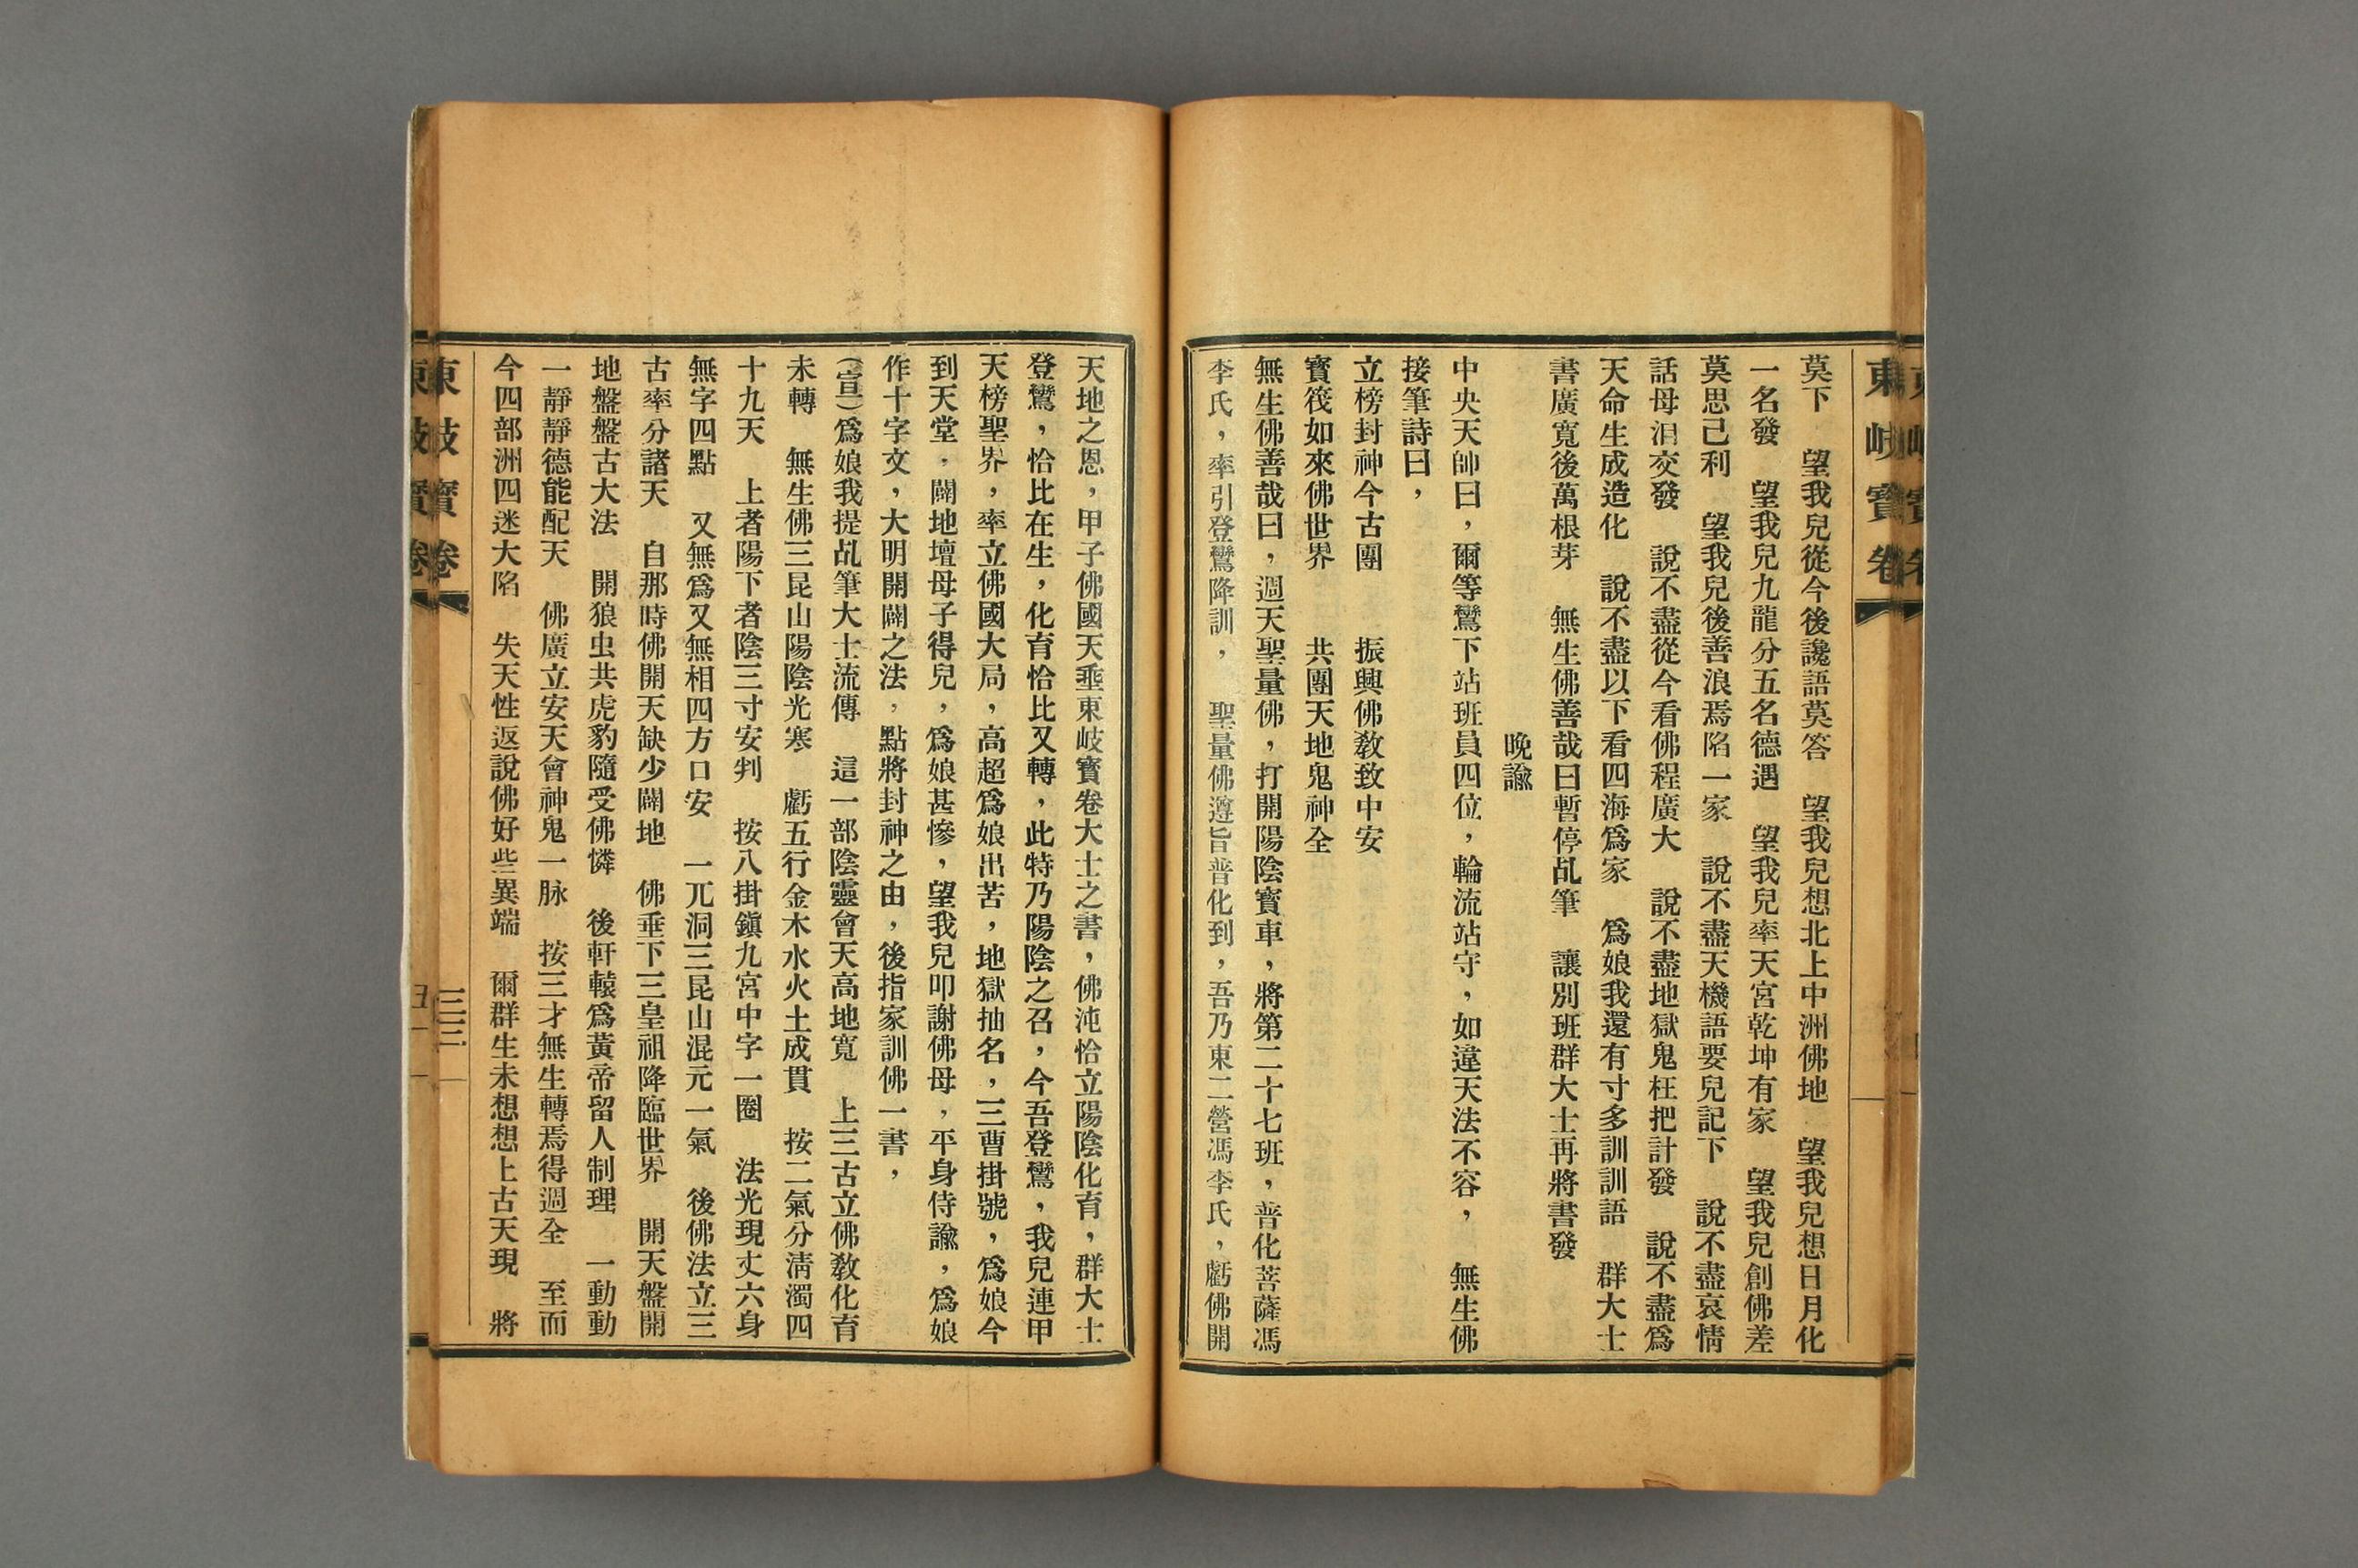 東岐寶卷
莫下　望我兒從今後讒語莫答　望我兒想北上中洲佛地　望我兒想日月化
一名發　望我兒九龍分五名德遇　望我兒率天宮乾坤有家　望我兒創佛差
莫思己利　望我兒後善浪焉陷一家　說不盡天機語要兒記下　說不盡哀情
話母泪交發　說不盡從今看佛程廣大　說不盡地獄鬼枉把計發　說不盡爲
天命生成造化　說不盡以下看四海爲家　爲娘我還有寸多訓訓語　群大士
書廣寬後萬根芽　無生佛善哉曰暫停乩筆　讓別班群大士再將書發
晚諭
中央天帥曰，爾等鸞下站班員四位，輪流站守，如違天法不容，　無生佛
接筆詩曰，
立榜封神今古團　　振興佛教致中安
寳筏如來佛世界　　共團天地鬼神全
無生佛善哉曰，週天聖量佛，打開陽陰寳車，將第二十七班，普化菩薩馮
李氏，率引登鸞降訓，　聖量佛遵旨普化到，吾乃東二營馮李氏，虧佛開
天地之恩，甲子佛國天垂東岐寳卷大士之書，佛沌恰立陽陰化育，群大士
登鸞，恰比在生，化育恰比又轉，此特乃陽陰之召，今吾登鸞，我兒連甲
天榜聖界，率立佛國大局，高超爲娘出苦，地獄抽名，三曹掛號，爲娘今
到天堂，闢地壇母子得兒，爲娘甚慘，望我兒叩謝佛母，平身侍諭，爲娘
作十字文，大明開闢之法，點將封神之由，後指家訓佛一書，
（宣）爲娘我提乩筆大士流傳　這一部陰靈會天高地寬　上三古立佛敎化育
未轉　無生佛三昆山陽陰光寒　虧五行金木水火土成貫　按二氣分清濁四
十九天　上者陽下者陰三寸安判　按八掛鎭九宮中字一圈　法光現丈六身
無字四點　又無爲又無相四方口安　一兀洞三昆山混元一氣　後佛法立三
古率分諸天　自那時佛開天缺少闢地　佛垂下三皇祖降臨世界　開天盤開
地盤盤古大法　開狼虫共虎豹隨受佛憐　後軒轅爲黃帝留人制理　一動動
一靜靜德能配天　佛廣立安天會神鬼一脉　按三才無生轉焉得週全　至而
今四部洲四迷大陷　失天性返說佛好些異端　爾群生未想想上古天現　將
東岐寶卷
三三